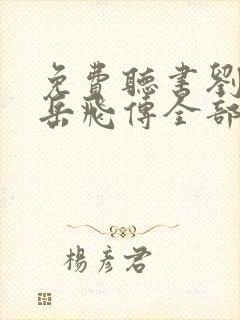 免費聽書劉
岳飛傳全部
楊彥君